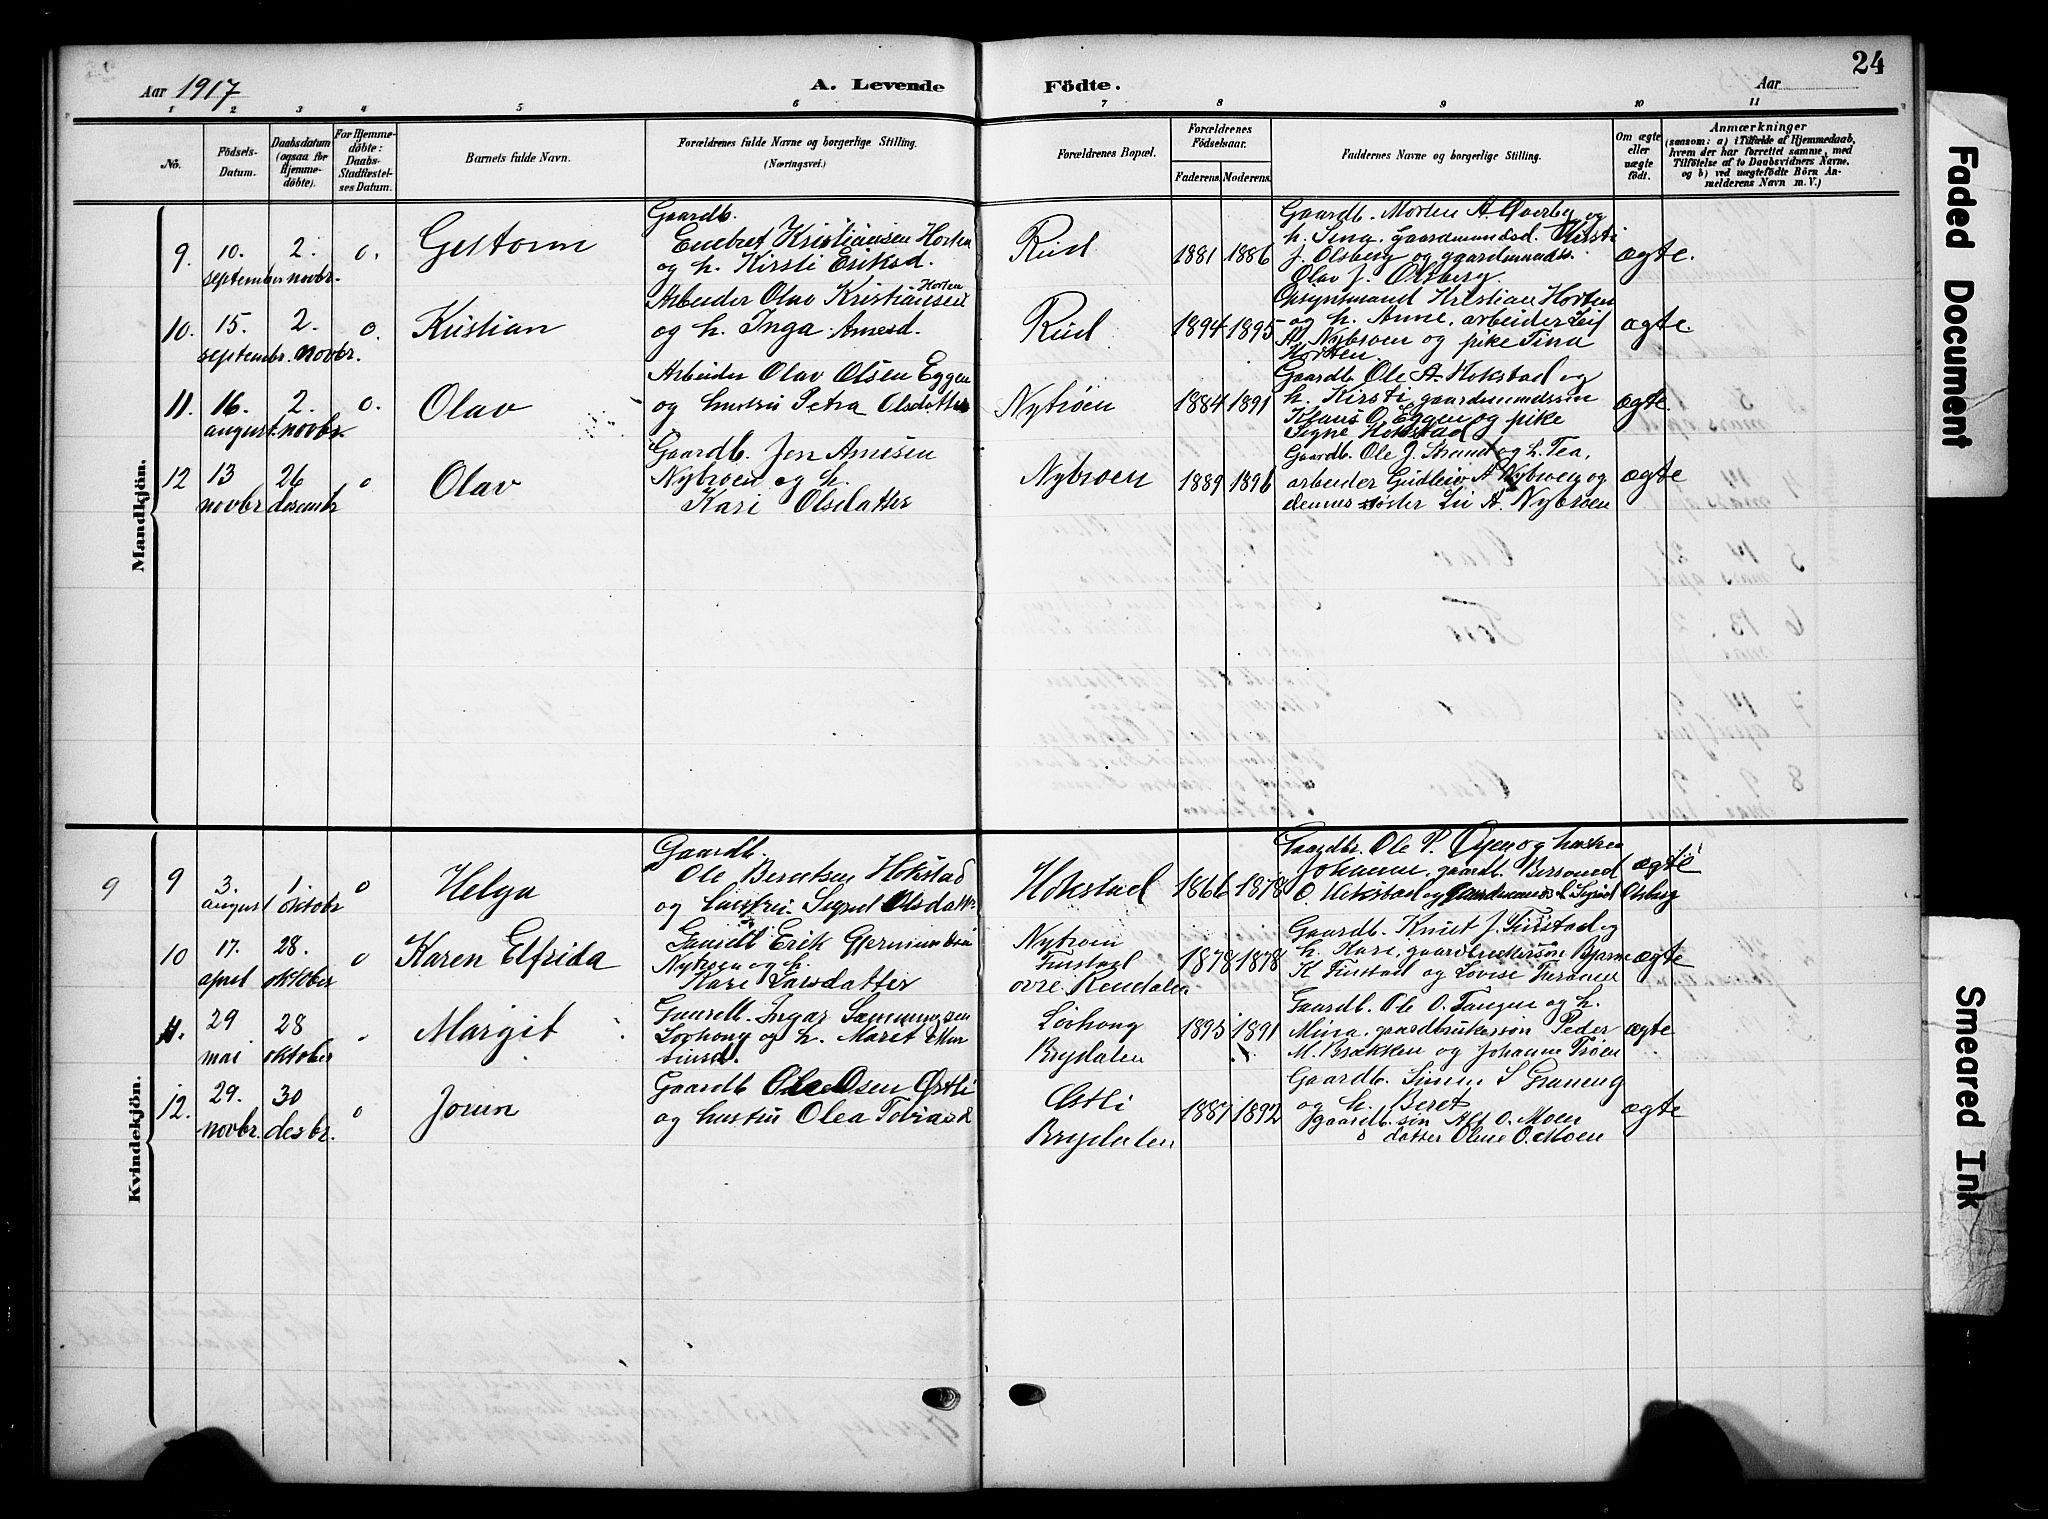 24
Aar 1917
A. Levende
Födte.
Aar
1 2 3 4 5 6 7 8 9 10 11
No.
Födsels-
Datum.
Daabsdatum
(ogsaa for
Hjemme-
döbte).
For Hjemme-
döbte:
Daabs-
Stadfæstel-
ses Datum.
Barnets fulde Navn.
Forældrenes fulde Navne og borgerlige Stilling.
(Næringsvei.)
Forældrenes Bopæl.
Forældrenes
Födselsaar.
Faderens. Moderens.
Faddernes Navne og borgerlige Stilling.
Om ægte
eller
uægte
födt.
Anmærkninger
(saasom: a) i Tilfælde af Hjemmedaab,
hvem der har forrettet samme, med
Tilföielse af to Daabsvidners Navne.
og b) ved uægtefödte Börn An-
melderens Navn m. V.)
Mandkjön.
9. 10. september 2. novbr. o. Gestorm
Gaardb.
Enebret Kristiansen Horten
og h. Kirsti Eriksd.
Rud 1881 1886
Gaardb. Morten A. Øverby og
h. Sina, gaardmandsd. Kirsti
J. Olsberg og gaardmands.
Olav J. Olsberg
ægte.
10. 15. septembr. 2. novbr. o. Kristian
Arbeider Olav Kristiansen Horten
og h. Inga Arnesd.
Rud 1894 1895
Opsynsmand Kristian Horten
og h. Anne, arbeider Leif
A. Nybroen og pike Tina
Horten.
ægte.
11. 16. august. 2. novbr. o. Olav
Arbeider Olav Olsen Eggen
og hustru Petra Olsdatter
Nytrøen 1884 1891
Gaardb. Ole A. Hokstad og
h. Kirsti, gaardmandssøn
Klaus O. Eggen og pike
Signe Hokstad
ægte.
12 13 novbr 26 desembr o Olav
Gaardb. Jon Arnesen
Nybroen og h.
Kari Olsdatter
Nybroen 1889 1896
Gaardb. Ole J. Strand og h. Tea,
arbeider Gudleiv A. Nybroen og
dennes søster Liv A. Nybroen
ægte
Kvindekjön.
9 9 3. august 1. oktobr o Helga
Gaardb.
Ole Berntsen Hokstad
og hustru Sigrid Olsdatter
Hokstad 1866 1878
Gaardbr. Ole P. Øyen og hustru
Johanne, gaardb.
O. Hokstad og Sigrid Olsberg
ægte
10 17. april 28. oktober o Karen Elfrida
Gaardb Erik Gjermundsen
Nytroen og h.
Kari Larsdatter
Nytroen
Finstad
øvre Rendalen
1878 1878
Gaardb. Knut J. Finstad og
h. Kari, gaardbrukersøn Bjarne
K. Finstad og Lovise
ægte
11. 29 mai 28 oktober Margit
Gaardb. Ingar Sammingsen
Lovhong og h. Maret
Lovhong
Brydalen
1895 1891
Gaardb. Ole O. Tangen og h.
Mina, gaardbrukersøn Peder
M. Brækken og Johanne Trøen
ægte
12. 29. novbr. 30 desbr. o Jorun
Gaardb Ole Olsen Østli
og hustru Olea Tobiasd
Østli
Brydalen
1887 1892
Gaardb. Simen S Graneng
og h. Beret
gaardb. søn Alf O. Moen
o datter Oline O. Moen
ægte
Faded Document
Smeared Ink